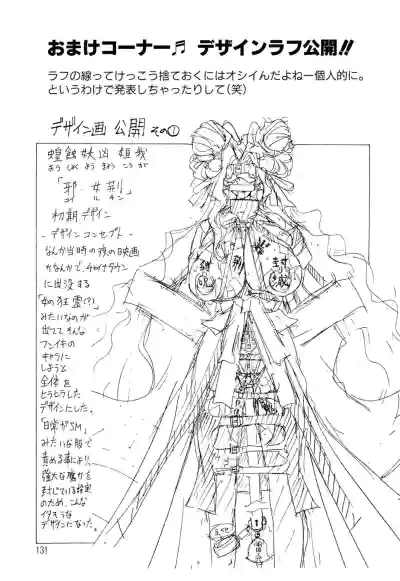 おまけコーナー♬ デザインラフ公開!!
ラフの線ってけっこう捨ておくにはオシイんだよね一個人的に。
というわけで発表しちゃったりして(笑)
デザイン画 公開 その①
蝗蝕妖凶 姮我
おうしょくようきょう こうが
「邪女荊」
初期デザイン
-デザインコンセプト-
なんか当時の夜の映画
かなんかで、チャイナタウン
に出没する
「女の狂霊(?)」
みたいなのが
出ててそんな
フンイキの
キャラに
しようと
全体を
とうとうした
デザインにした。
「日常がSM」
みたいな服で
責める事により、
強大な魔力を
封じている設定
のため、こんな
イタそうな
デザインになった。
封
荊
131